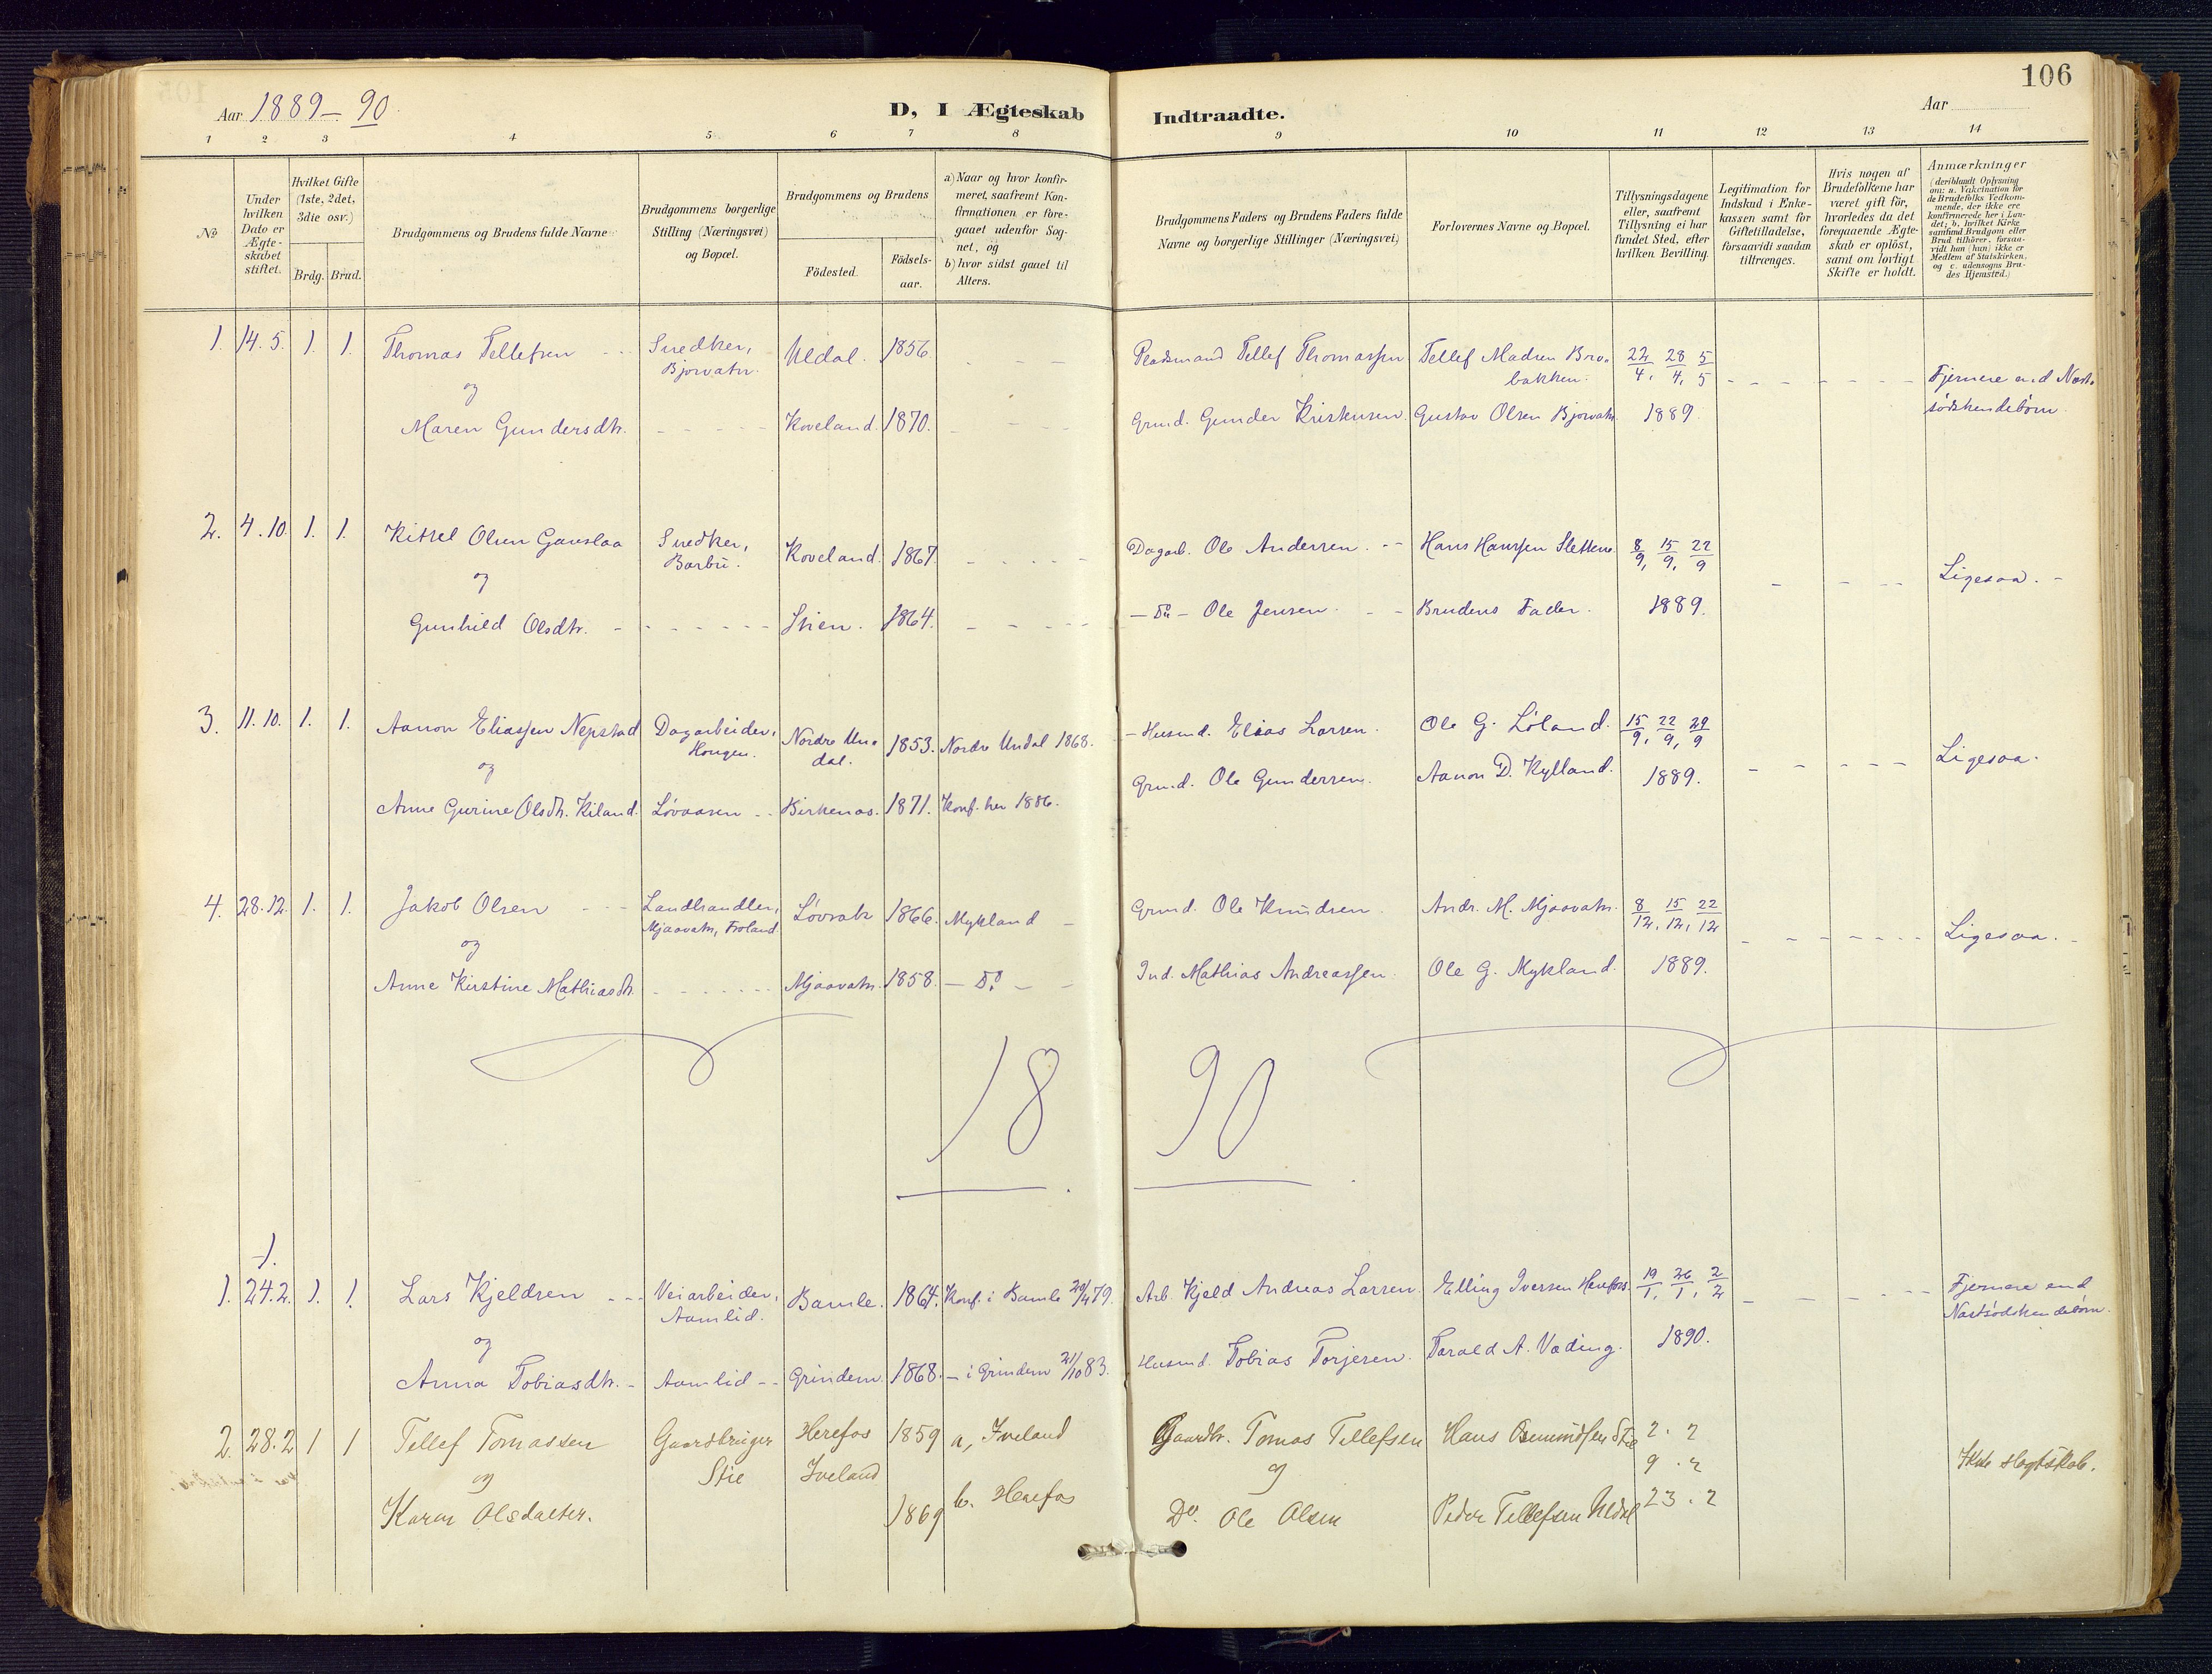 106
Aar 1889-90.
D, I Ægteskab Indtraadte.
Aar
1 2 3 4 5 6 7 8 9 10 11 12 13 14
No
Under hvilken Dato er Ægte-skabet stiftet.
Hvilket Gifte (1ste, 2det, 3die osv.)
Brdg. Brud.
Brudgommens og Brudens fulde Navne
Brudgommens borgerlige Stilling (Næringsvei) og Bopæl.
Brudgommens og Brudens
Födested.
Födsels-aar.
a) Naar og hvor konfir-meret, saafremt Kon-firmationen er fore-gaaet udenfor Sog-net, og
b) hvor sidst gaaet til Alters.
Brudgommens Faders og Brudens Faders fulde Navne og borgerlige Stillinger (Næringsvei)
Forlovernes Navne og Bopæl.
Tillysningsdagene eller, saafremt Tillysning ei har fundet Sted, efter hvilken Bevilling.
Legitimation for Indskud i Enke-kassen samt for Giftetilladelse, forsaavidt saadan tiltrænges.
Hvis nogen af Brudefolkene har været gift för, hvorledes da det foregaaende Ægte-skab er oplöst, samt om lovligt Skifte er holdt.
Anmærkninger (deriblandt Oplysning om: a. Vakcination for de Brudefolks Vedkom-mende, der ikke ere konfirmerede her i Lan-det; b. hvilket Kirke-samfund Brudgom eller Brud tilhörer, forsaa-vidt han (hun) ikke er Medlem af Statskirken, og c. udensogns Bru-des Hjemsted.)
1. 14.5. 1. 1. Thomas Tellefsen Snedker, Bjorvatn. Uldal. 1856. Pladsmand Tellef Thomassen Tellef Madsen Bro-bakken. 22/4, 28/4, 5/5 Fjernere end Næst-sødskendebørn.
og
Maren Gundersdtr. Koveland. 1870. Grmd. Gunder Kristensen. Gustav Olsen Bjorvatn. 1889.
2. 4.10. 1. 1. Kittel Olsen Gauslaa Snedker, Barbu. Koveland. 1867. Dagarb. Ole Andersen. Hans Hansen Sletten. 8/9, 15/9, 22/9 Ligesaa.
og
Gunhild Olsdtr. Stien. 1864. - Do - Ole Jensen. Brudens Fader. 1889.
3. 11.10. 1. 1. Aanon Eliassen Nepstad Dagarbeider, Hougen. Nordre Un-dal. 1853. Nordre Undal 1868. Husmd. Elias Larsen. Ole G. Løland. 15/9, 22/9, 29/9 Ligesaa.
og
Anne Gurine Olsdtr. Kiland. Løvaasen Birkenæs. 1871. Konf. her 1886. Grmd. Ole Gundersen. Aanon D. Kylland. 1889.
4. 28.12. 1. 1. Jakob Olsen Landhandler, Mjaavatn, Froland. Løvrak 1866. Mykland Grmd. Ole Knudsen. Andr. M. Mjaavatn. 8/12, 15/12, 22/12 Ligesaa.
og
Anne Kirstine Mathiasdtr. Mjaavatn. 1858. - Do - Ind. Mathias Andreassen. Ole G. Mykland. 1889.
18 90
1. 24.2. 1. 1. Lars Kjeldsen Veiarbeider, Aamlid. Bamle. 1864. Konf. i Bamle 20/4 79. Arb. Kjeld Andreas Larsen. Elling Iversen Herefoss. 19/1, 26/1, 2/2 Fjernere end Næstsødskendebørn.
og
Anna Tobiasdtr. Aamlid Grindem. 1868. - i Grindem 21/10 83. Husmd. Tobias Torjesen. Tarald A. Væding. 1890.
2. 28.2 1 1 Tellef Tomassen Gaardbruger Stie Herefos 1859 a, Iveland Gaardbr. Tomas Tellefsen Hans Osmundsen Stie 2.2 Ikke slægtskab.
og Iveland og 9.2
Karen Olsdatter. 1869 b. Herefos Do. Ole Olsen Peder Tellefsen Uldal 23.2